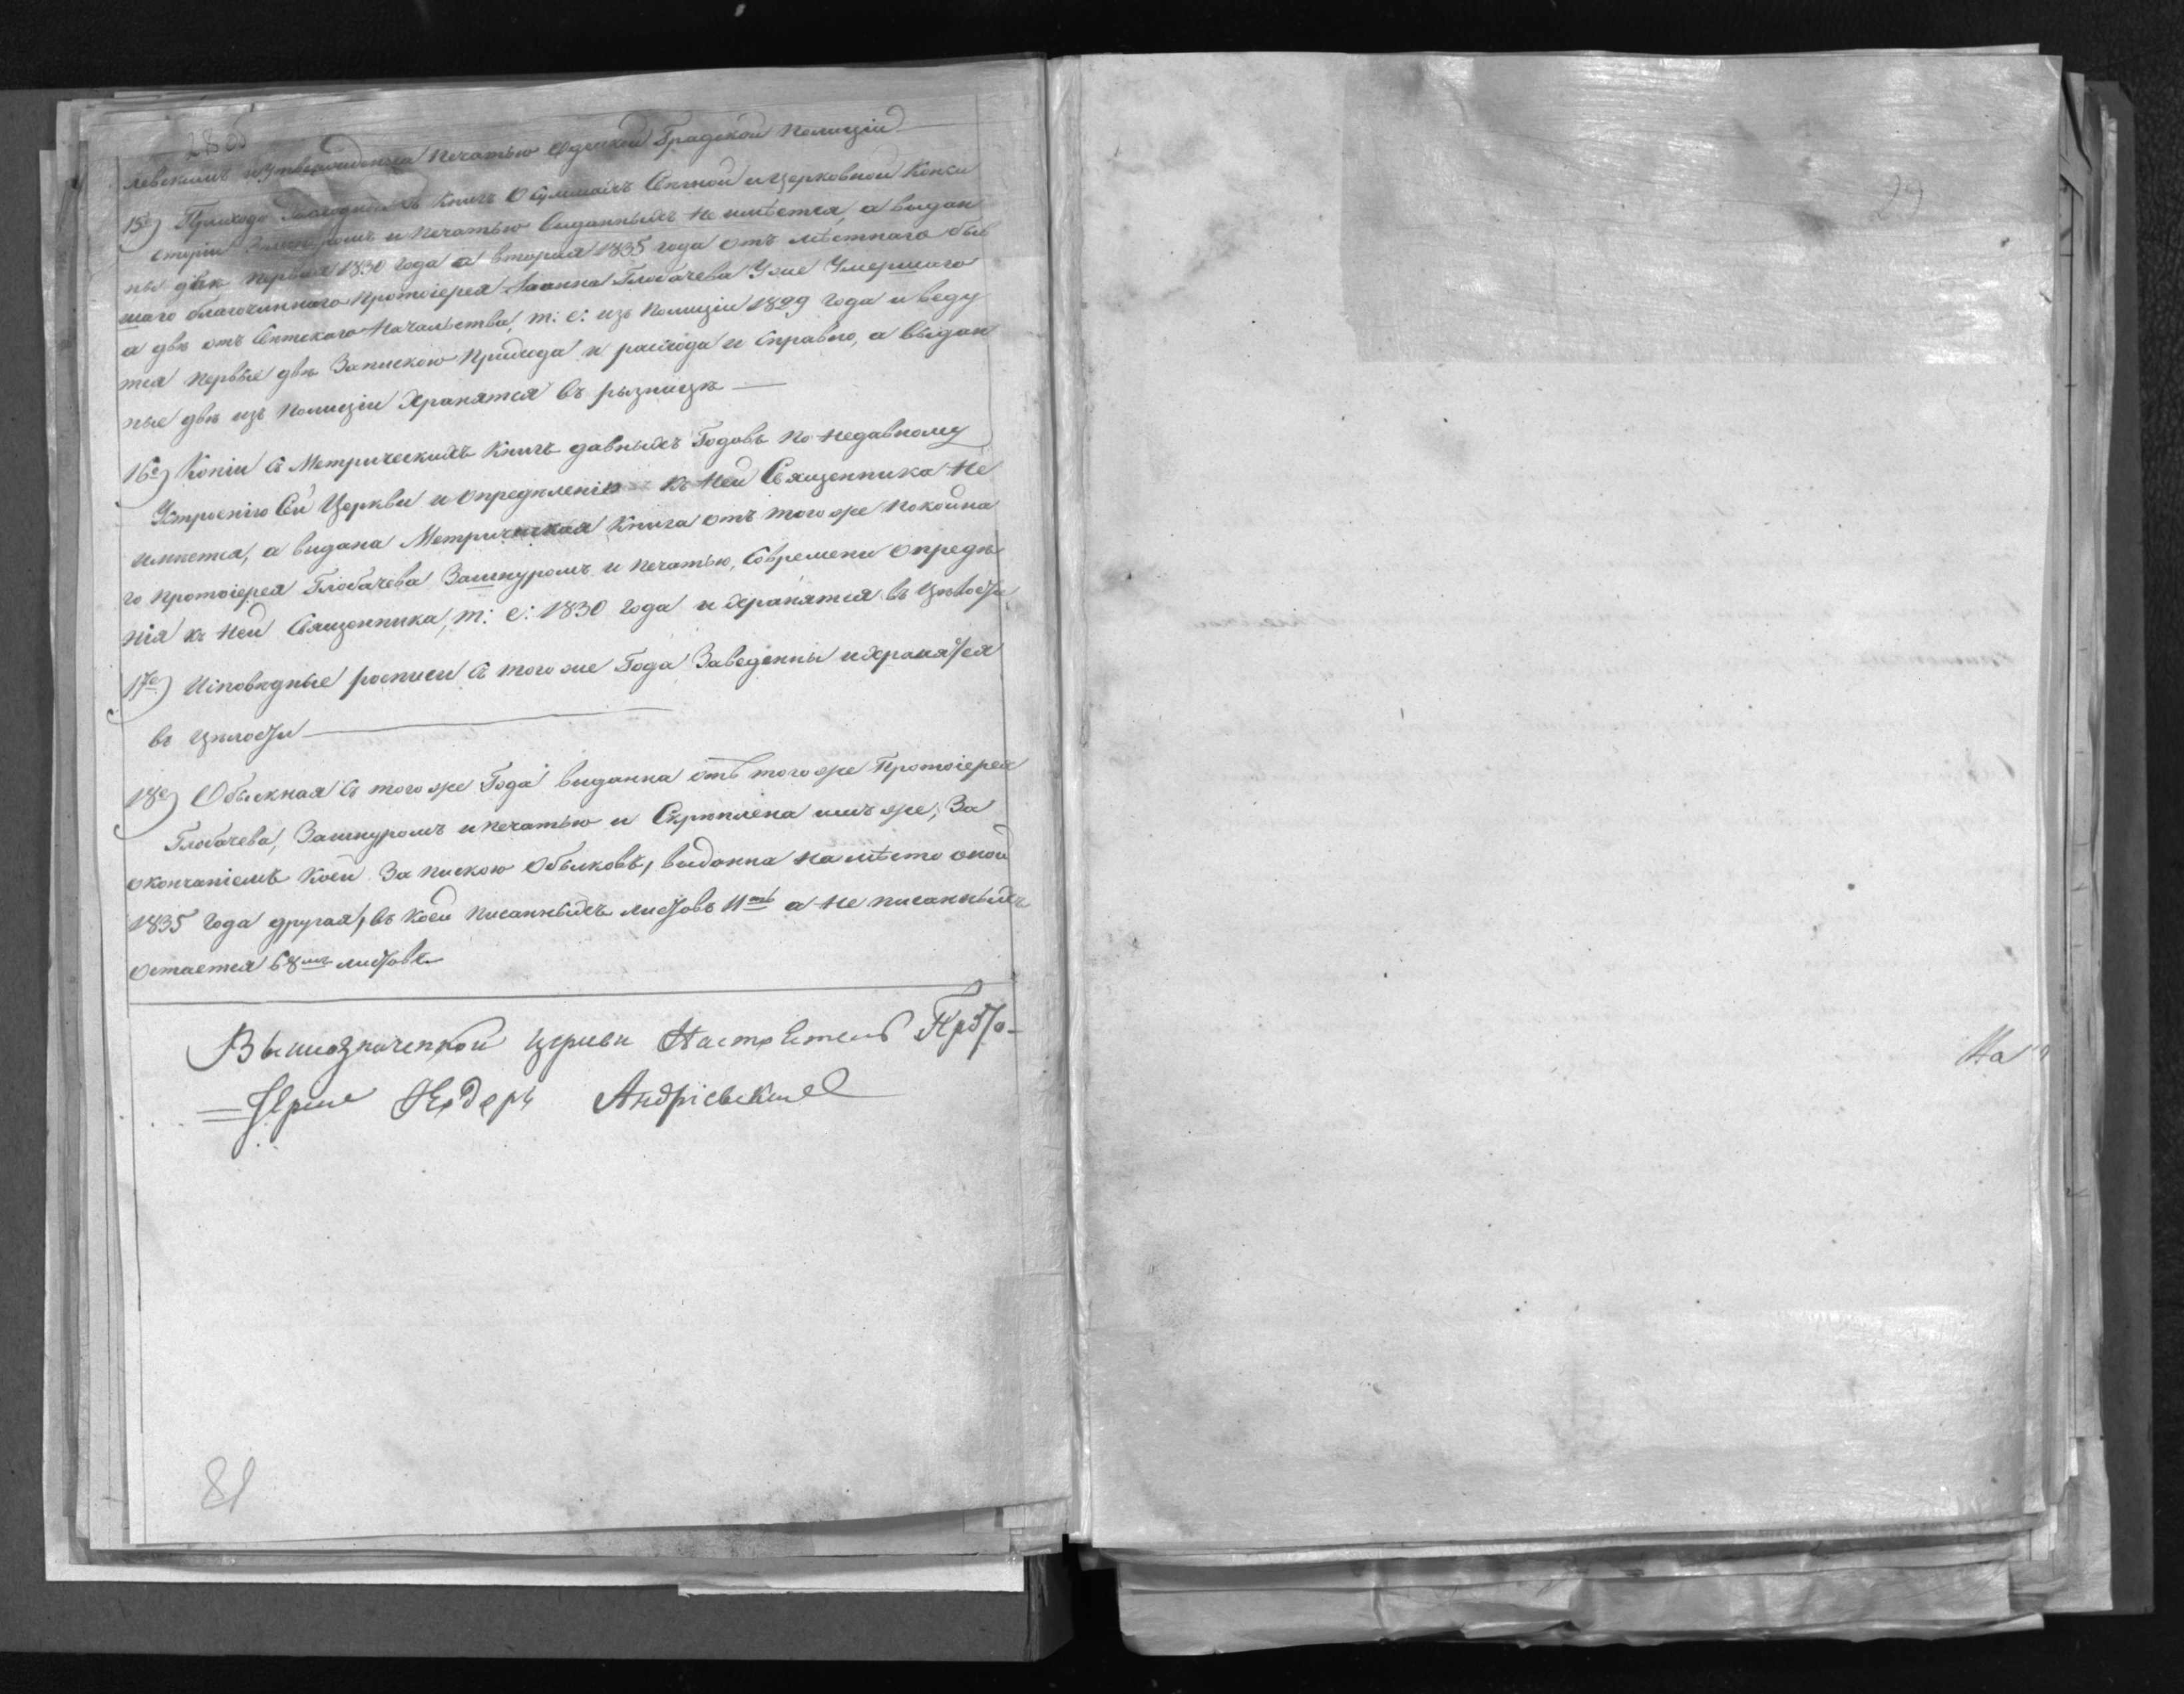 28 об
левскимъ и утвержденна печатью Одесской Градской Полиціи
15е) Приходо расходныхъ книгъ о суммахъ Свѣчной и церковной Конси
сторіи Зашнуромъ и печатью выданныхъ не имѣется, а выдан
ны двѣ первая 1830 года а вторая 1835 года отъ мѣстнаго быв
шаго благочиннаго протоіерея Іоанна Глобачева уже умершаго
а двѣ отъ Свѣтскаго начальства, т: е: изъ Полиціи 1829 года и веду
тся первые двѣ Запискою прихода и расхода и справно, а выдан
ные двѣ изъ Полиціи хранятся въ рызницѣ
16е) Копіи съ Метрическихъ книгъ давныхъ Годовъ по недавному
Устроенію Сей Церкви и опредѣленію къ ней Священника не
имѣется, а выдана Метрическая книга отъ того же покойна
го протоіерея Глобачева Зашнуромъ и печатью, Современи опредѣ
нія къ ней Священника, т: е: 1830 года и хранятся въ цѣлости
17е) Исповѣдные росписи съ того же Года Заведенны и хранятся
въ цѣлости
18е) Обыскная съ того же Года выданна отъ того же Протоіерея
Глобачева, Зашнуромъ и печатью и Скрѣплена имъ же, За
окончаніемъ коей Запискою Обысковъ, выданна на мѣсто оной
1835 года другая, въ коей писанныхъ листовъ 11ть а не писанныхъ
остается 68мъ листовъ
Вышеозначенной церкви Настоятель Прото-
=Іерей Ѳедоръ Андріевскій
81
29
На